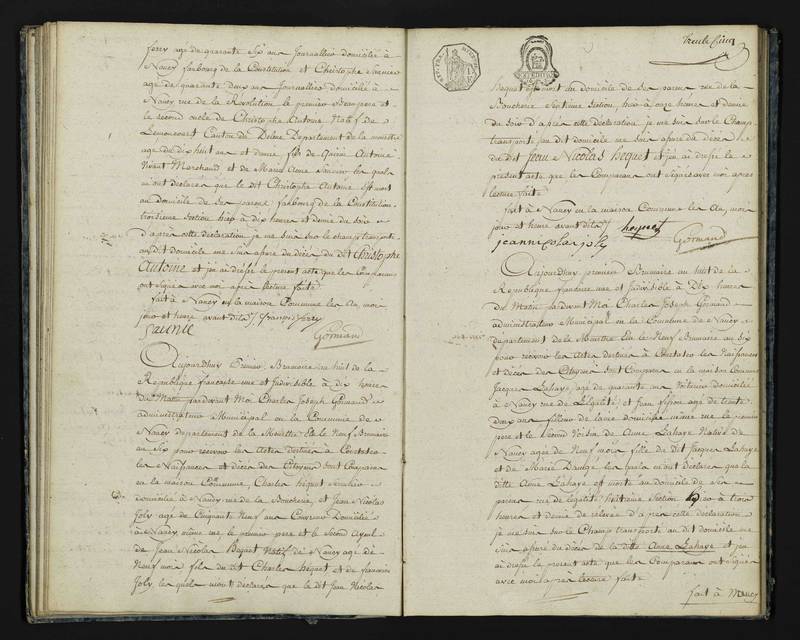 agé de quarante Six ans Journallier domicilié à
Nancy faubourg de la Constitution et Christophe
agé de quarante deux ans Journallier domicilié à
Nancy rue de la Révolution le premier pere et
le second oncle de Christophe Antoine Natif de
Lemoncourt Canton de Delme Departement de la meurthe
agé de dix huit ans et demie fils de Antoine
vivant Marchand et de Marie Anne les quels
m'ont déclarés que le dit Christophe Antoine est mort
au domicile de Ses parens faubourg de la Constitution
troisieme Section hier à dix heures et demie du soir
d'après cette declaration je me suis sur le champ transporté
au dit domicile me suis assuré du décès du dit Christophe
Antoine et j'en ai dressé le present acte que les Comparans
ont signé avec moi après lecture faite
fait à Nancy en la maison Commune les An, mois
jour et heure avant dits françois
Gormand
Aujourdhuy premier Brumaire an huit de la
Republique française une et Indivisible à dix heures
du Matin pardevant Moi Charles Joseph Gormand
administrateur Municipal en la Commune de
Nancy departement de la Meurthe Elu le Neuf Brumaire
an Six pour recevoir les Actes destinés à Constater
les Naissances et décès des Citoyens sont Comparus
en la maison Commune, Charles hequet
domicilié à Nancy rue de la Boucherie, et Jean Nicolas
Joly agé de Cinquante Neuf ans Domicilié
à Nancy même rue, le premier pere et le Second Ayeul
de Jean Nicolas Hequet Natif de Nancy agé de
Neuf mois fils du dit Charles hequet et de francoise
Joly les quels m'ont declarés que le dit Jean Nicolas
trente Cinq
hequet est mort au domicile de Ses parens, rue de la
Boucherie Septieme Section, hier à onze heures et demie
du soir d'après cette declaration je me suis sur le Champ
transporté au dit domicile me suis assuré du décès
du dit Jean Nicolas hequet et j'en ai dressé le
présent acte que les Comparans ont signés avec moi après
lecture faite
fait à Nancy en la maison Commune les An, mois
jour et heure avant dits hequet
jean nicolas joly Gormand
Aujourdhuy premier Brumaire an huit de la
Republique française une et Indivisible à Dix heures
du Matin pardevant Moi Charles Joseph Gormand
administrateur Municipal en la Commune de Nancy
departement de la Meurthe Elu le Neuf Brumaire an Six
pour recevoir les Actes destinés à Constater les Naissances
et décès des Citoyens sont Comparus en la maison Commune
Jacques Lahaye, agé de quarante ans Voiturier domicilié
à Nancy rue de L'égalité et Jean agé de trente
deux ans domicilié même rue le premier
pere et le Second Voisin de Anne Lahaye Native de
Nancy agée de Neuf mois fille du dit Jacques Lahaye
et de Marie les quels m'ont declarés que la
ditte Anne Lahaye est morte au domicile de Ses
parens rue de legalité huittieme Section hier à trois
heures et demie de relevée d'après cette declaration
je me suis sur le Champ transporté au dit domicile me
suis assuré du décès de la ditte Anne Lahaye et j'en
ai dressé le present acte que les Comparans ont signés
avec moi après lecture faite
fait à Nancy